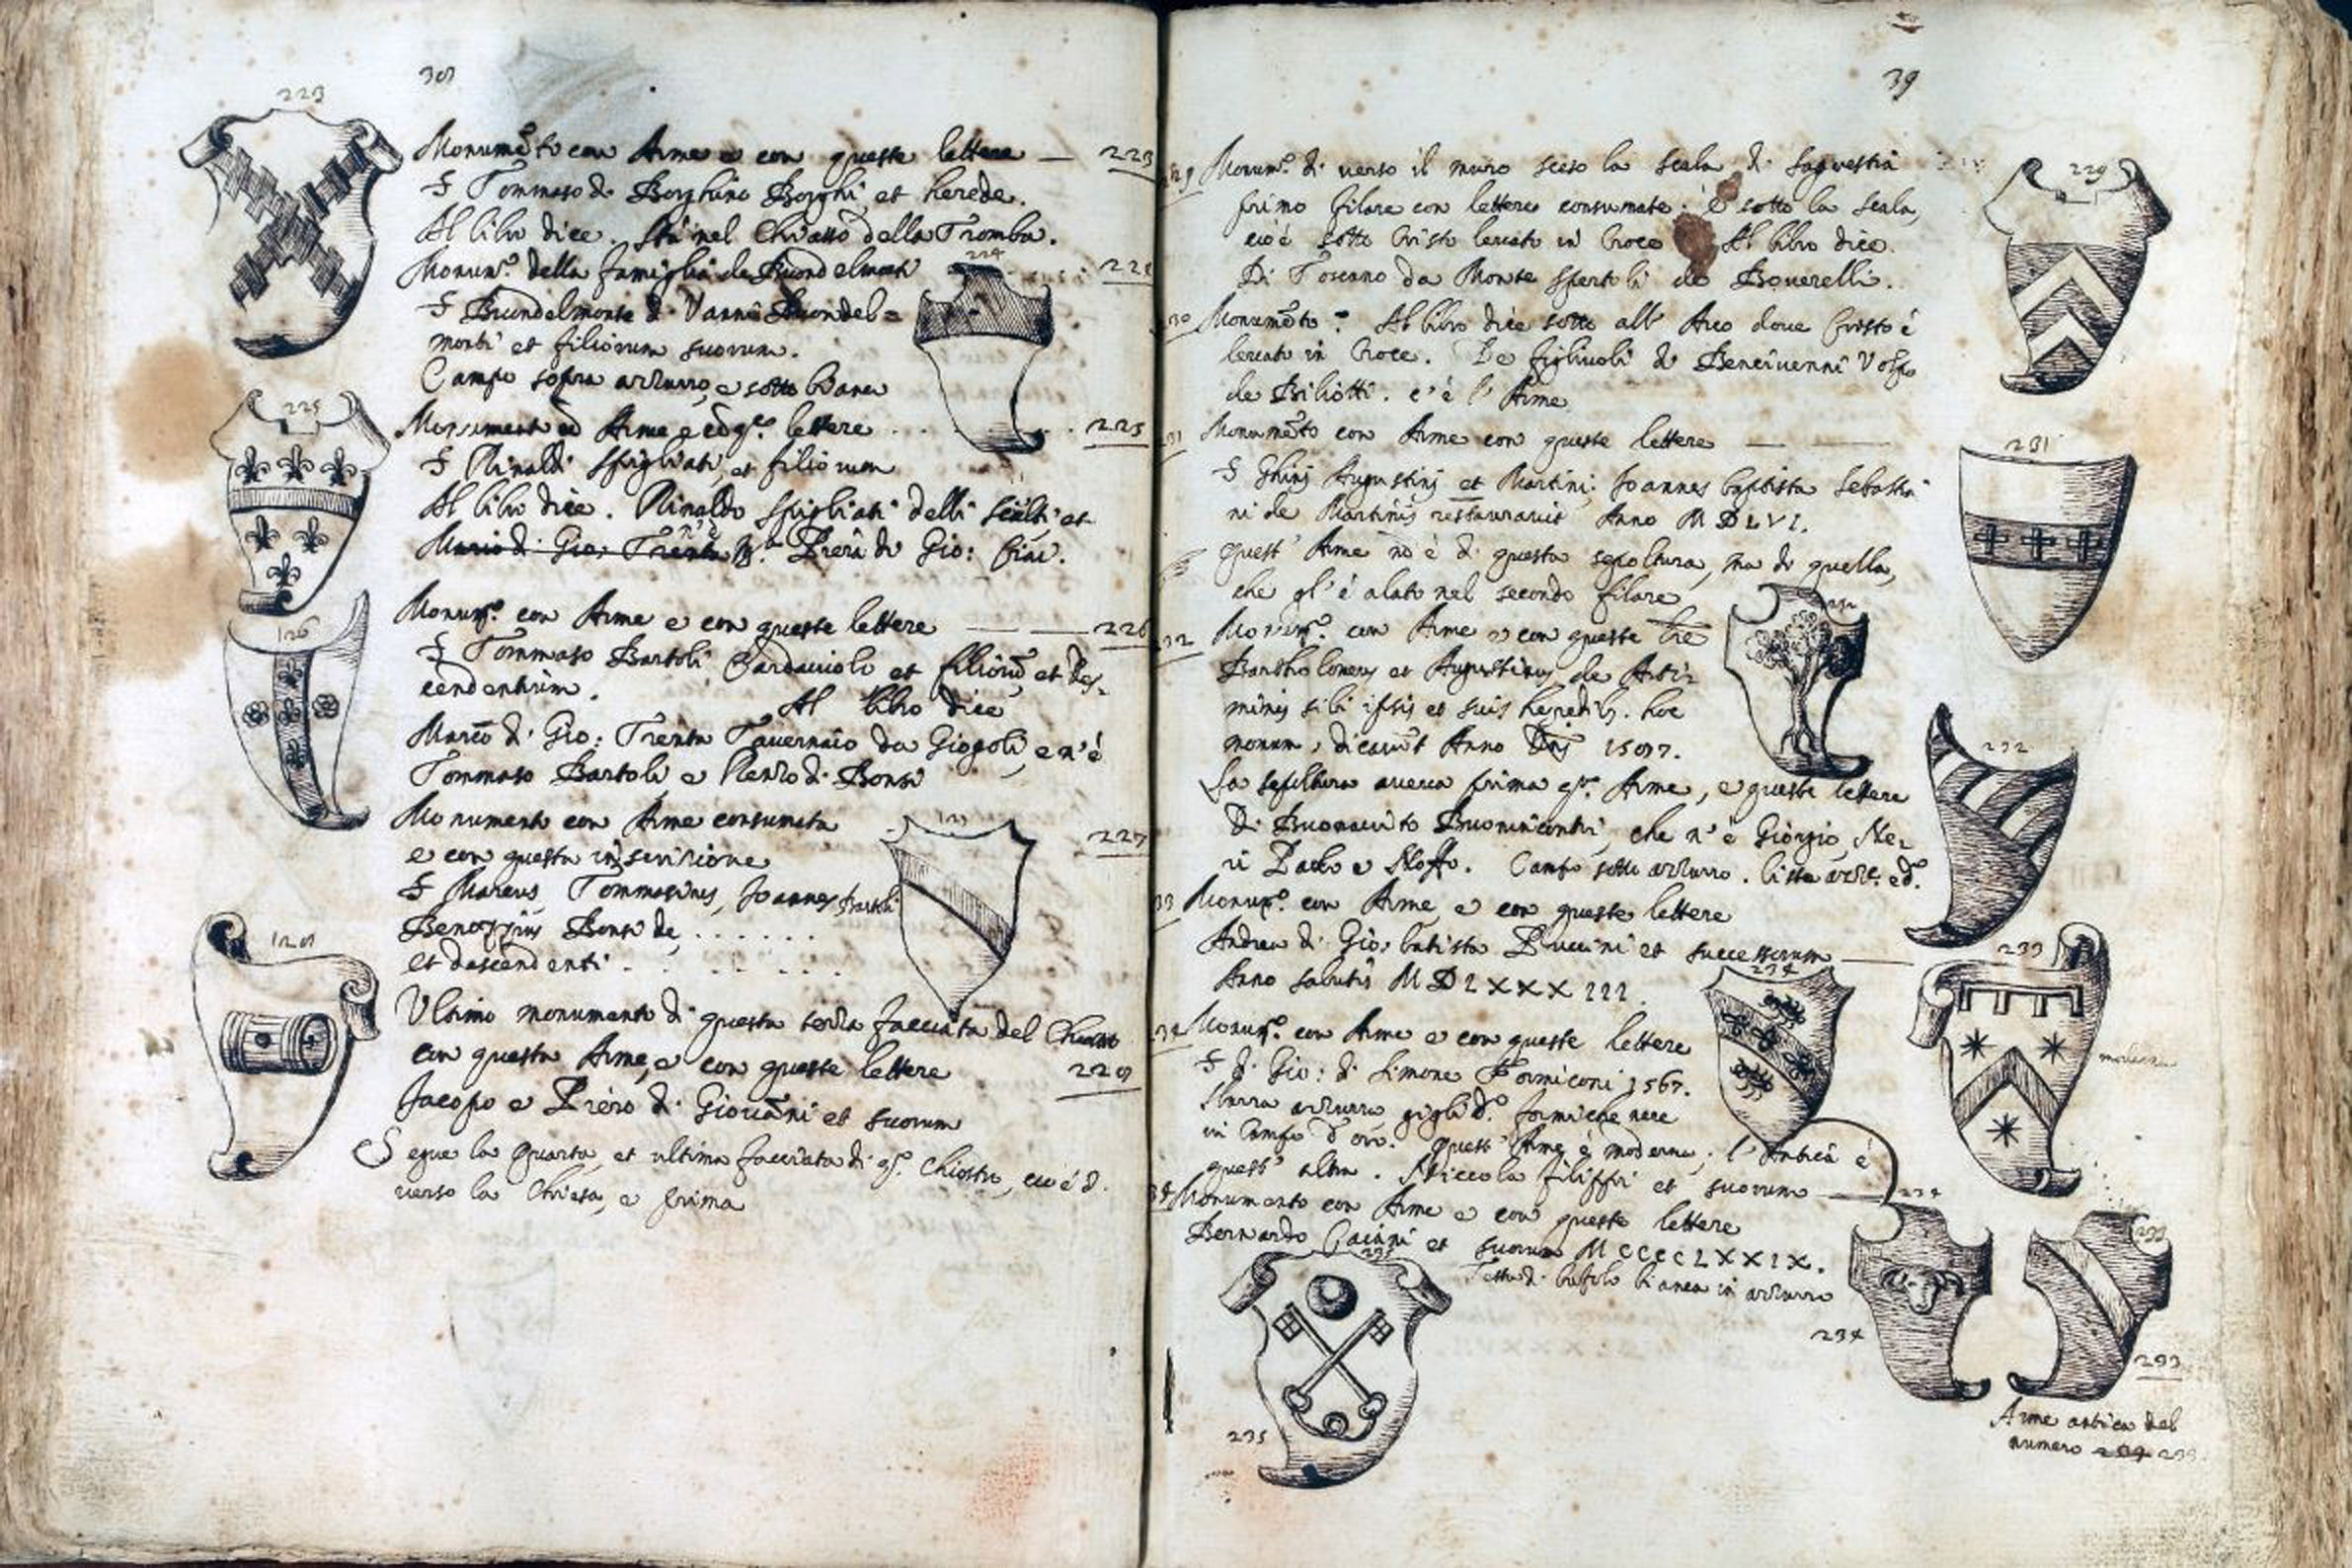 38
223
Monumẽto con Arme e con queste lettere — 223
S Tommaso di Borghino Borghi et herede.
Al libro dice. Sta nel Chiasso della Tromba.
Monum.º della famiglia de Buondelmonti 224
224
S Buondelmonte di Vanni Buondel=
monti et filiorum suorum.
Campo sopra azzurro, e sotto bianco
225
Monumento cõ Arme e cõ q.e lettere . . . 225
S Rinaldi Spigliati, et filiorum
Al libro dice. Rinaldo Spigliati delli et
Piero di Gio:
226
Monum.º con Arme e con queste lettere — — 226
S Tommaso Bartoli Cardaiuoli et filiorũ et des-
cendentium.
Al libro dice
Marco di Gio: Trenta Tavernaio da Giogoli, e n'è
Tommaso Bartoli e di Bonsi
Monumento con Arme consumata
227
227
e con questa inscrizione
S Marcus Tommasinus, Joannes Bartoli
Bonsi de . . . . . .
et descendenti . . . . . . .
228
Ultimo monumento di questa terza facciata del Chiostro
con questa Arme, e con queste lettere 228
Jacopo e Piero di Giovãni et suorum
Segue la quarta, et ultima facciata di q.º Chiostro, cio è d.
verso la Chiesa, e prima
39
229
Monum.º di verso il muro sceso la scala di Sagrestia
primo filare con lettere consumate. è sotto la scala,
cio è sotto Cristo levato in Croce Al libro dice.
Di Toscano da Monte Spertoli de Boverelli.
Monumẽto . Al libro dice sotto all' Arco dove Cristo è
levato in Croce. De figliuoli di Bencivenni Volpe
de Biliotti. c'è l'Arme
231
Monumẽto con Arme con queste lettere — —
S Ghini Augustini et Martini: Joannes baptista Sebastia
ni de Martinis restauravit Anno MDLVI.
quest' Arme nõ è di questa sepoltura, ma di quella,
che gl'è alato nel secondo filare
232
Monum.º con Arme e con queste lrẽ
Bartholomeus et Augustinus de Arti-
minis sibi ipsis et suis heredib. hoc
monum. dicavit Anno Dñi 1587.
232
La sepultura aveva prima q.ª Arme, e queste lettere
Di Buonavito Buonincontri, che n'è Giorgio, Ne-
ri e . Campo sotto azzurro. lista azz.ª e d.º
Monum.º con Arme, e con queste lettere
233
Andrea di Gio: batista Puccini et successorum —
Anno salutis MDLXXXIII.
234
moderna
Monum.º con Arme e con queste lettere
S di Gio: di Simone Formiconi 1567.
Sbarra azzurra gigli d.º formiche nere
in campo d'oro. quest' Arme è moderna, l'Antica è
quest' altra. Niccola Filippi et suorum — 234
Monumento con Arme e con queste lettere
Bernardo Caiani et suorum MCCCCLXXIX.
Testa di bufolo bianca in azzurro
235
235
234
233
233
Arme antica del
numero 233